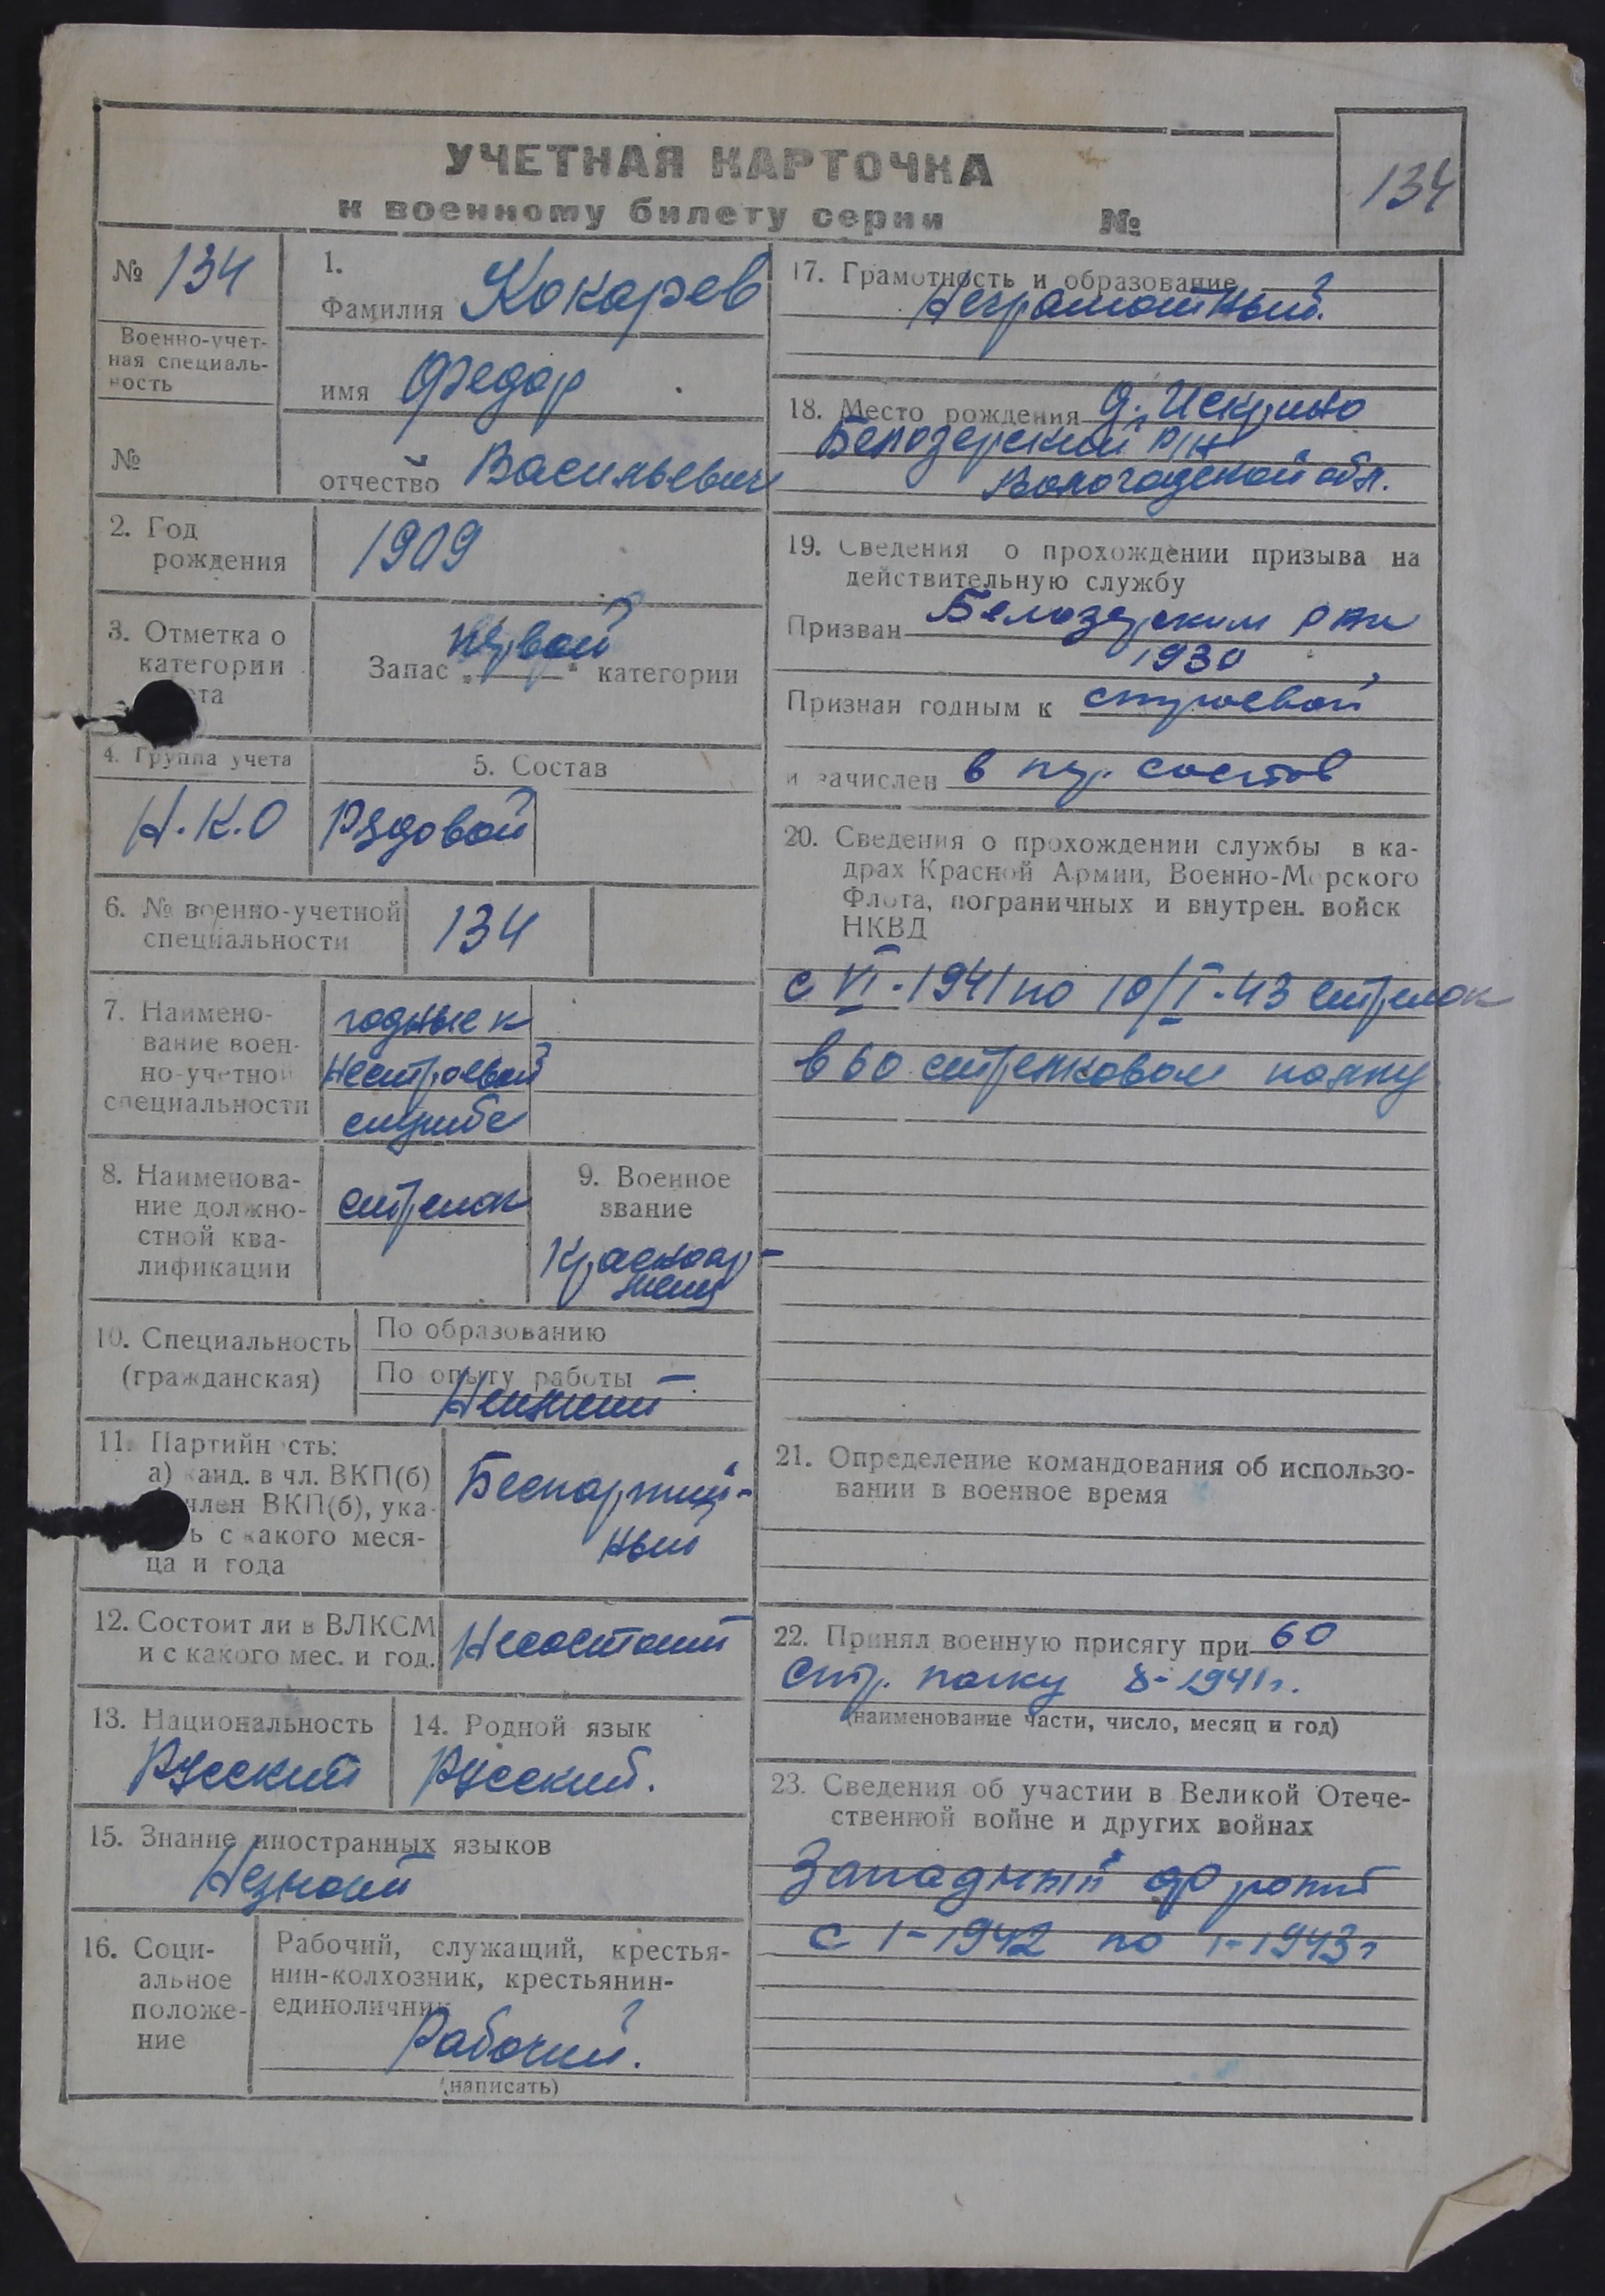 УЧЕТНАЯ КАРТОЧКА
к военному билету серии №
134
№ 134
Военно-учет-
ная специаль-
ность
№
1.
Фамилия Кокарев
имя Федор
отчество Васильевич
2. Год
рождения
1909
3. Отметка о
категории
ета
Запас „первой“ категории
4. Группа учета
Н.К.О
5. Состав
Рядовой
6. № военно-учетной
специальности
134
7. Наимено-
вание воен-
но-учетной
специальности
годные к
нестроевой
службе
8. Наименова-
ние должно-
стной ква-
лификации
стрелок
9. Военное
звание
Красноар-
меец
10. Специальность
(гражданская)
По образованию
По опыту работы
Неимеит
11. Партийность:
а) канд. в чл. ВКП(б)
член ВКП(б), ука-
ь с какого меся-
ца и года
Беспартий-
ный
12. Состоит ли в ВЛКСМ
и с какого мес. и год.
Несостоит
13. Национальность
Русский
14. Родной язык
Русский.
15. Знание иностранных языков
Незнаит
16. Соци-
альное
положе-
ние
Рабочий, служащий, крестья-
нин-колхозник, крестьянин-
единоличник
Рабочий.
(написать)
17. Грамотность и образование
Неграмотный.
18. Место рождения д. Искрино
Белозерский р/н
Вологодской обл.
19. Сведения о прохождении призыва на
действительную службу
Призван Белозерским РВК
1930
Признан годным к строевой
и зачислен в пер. состав
20. Сведения о прохождении службы в ка-
драх Красной Армии, Военно-Морского
Флота, пограничных и внутрен. войск
НКВД
с VI-1941 по 10/I-43 стрелок
в 60 стрелковом полку
21. Определение командования об использо-
вании в военное время
22. Принял военную присягу при 60
Стр. полку 8-1941г.
(наименование части, число, месяц и год)
23. Сведения об участии в Великой Отече-
ственной войне и других войнах
Западный фронт
с 1-1942 по 1-1943г